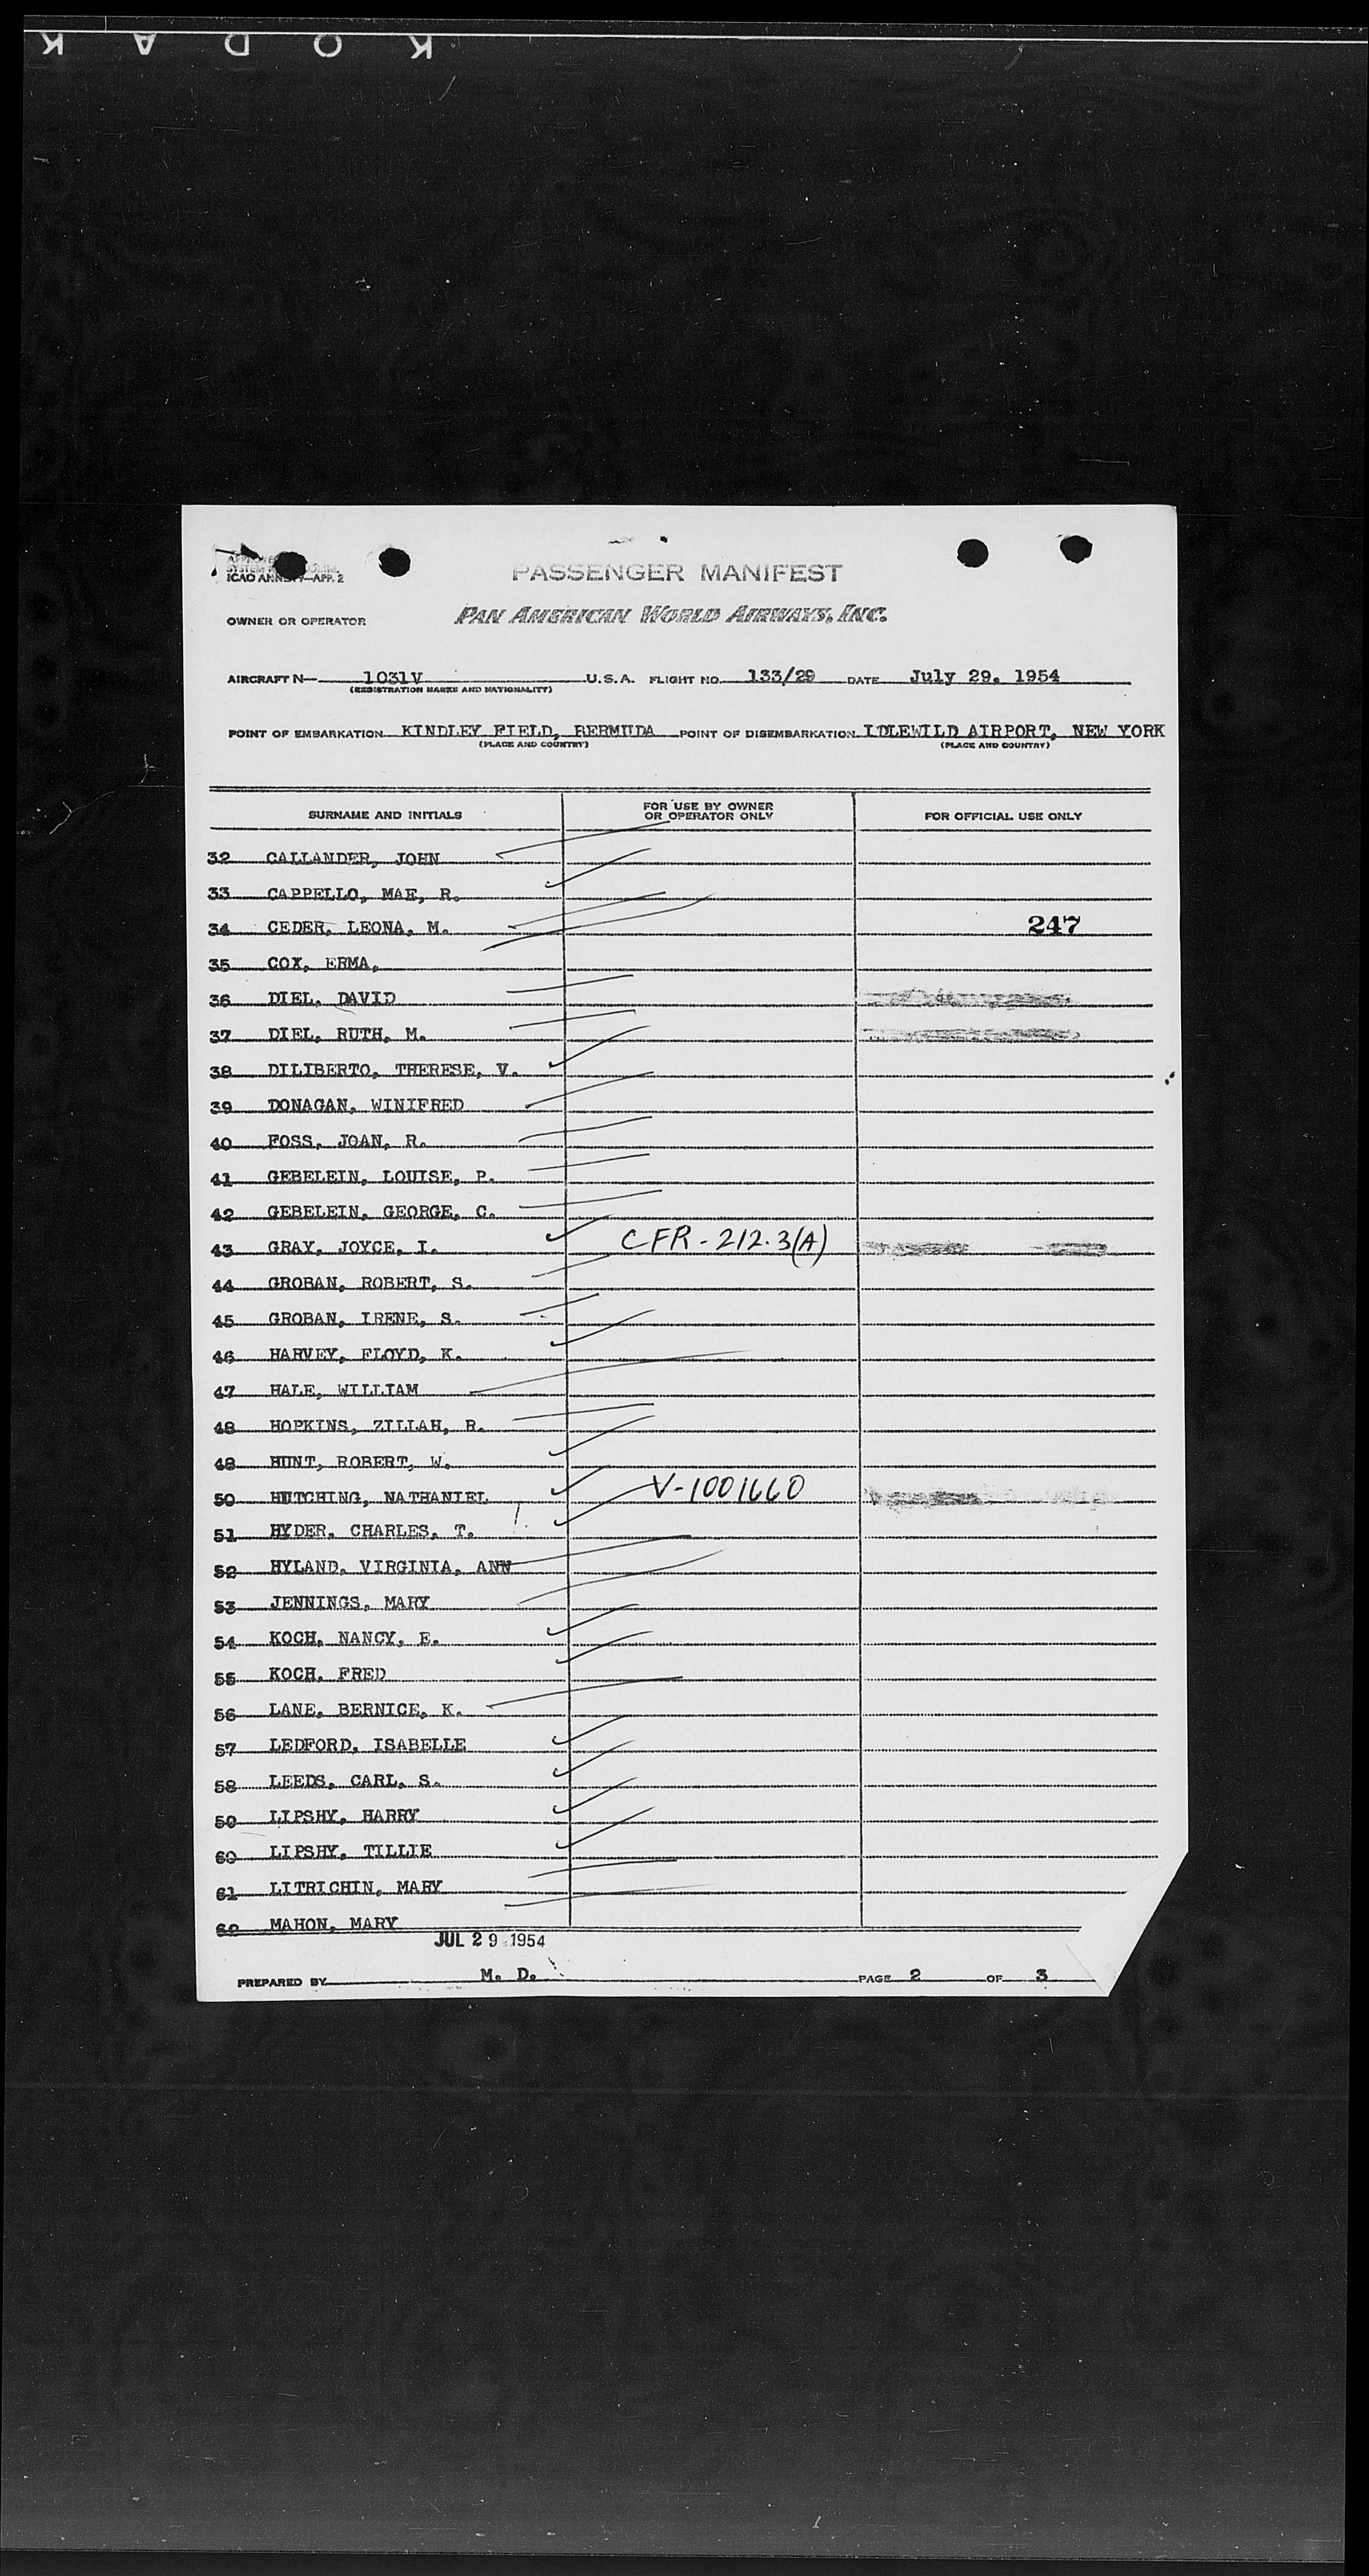 KODAK
ICAO ANNEX 9—APP. 2
PASSENGER MANIFEST
OWNER OR OPERATOR PAN AMERICAN WORLD AIRWAYS, INC.
AIRCRAFT N— 1031V U.S.A. FLIGHT NO. 133/29 DATE July 29, 1954
(REGISTRATION MARKS AND NATIONALITY)
POINT OF EMBARKATION KINDLEY FIELD, BERMUDA POINT OF DISEMBARKATION IDLEWILD AIRPORT, NEW YORK
(PLACE AND COUNTRY) (PLACE AND COUNTRY)
SURNAME AND INITIALS FOR USE BY OWNER OR OPERATOR ONLY FOR OFFICIAL USE ONLY
32 CALLANDER, JOHN
33 CAPPELLO, MAE, R.
34 CEDER, LEONA, M. 247
35 COX, ERMA,
36 DIEL, DAVID
37 DIEL, RUTH, M.
38 DILIBERTO, THERESE, V.
39 DONAGAN, WINIFRED
40 FOSS, JOAN, R.
41 GEBELEIN, LOUISE, P.
42 GEBELEIN, GEORGE, C.
43 GRAY, JOYCE, I. CFR-212.3(A)
44 GROBAN, ROBERT, S.
45 GROBAN, IRENE, S.
46 HARVEY, FLOYD, K.
47 HALE, WILLIAM
48 HOPKINS, ZILLAH, R.
49 HUNT, ROBERT, W.
50 HUTCHING, NATHANIEL V-1001660
51 HYDER, CHARLES, T.
52 HYLAND, VIRGINIA, ANN
53 JENNINGS, MARY
54 KOCH, NANCY, E.
55 KOCH, FRED
56 LANE, BERNICE, K.
57 LEDFORD, ISABELLE
58 LEEDS, CARL, S.
59 LIPSHY, HARRY
60 LIPSHY, TILLIE
61 LITRICHIN, MARY
62 MAHON, MARY
JUL 29 1954
PREPARED BY M. D. PAGE 2 OF 3